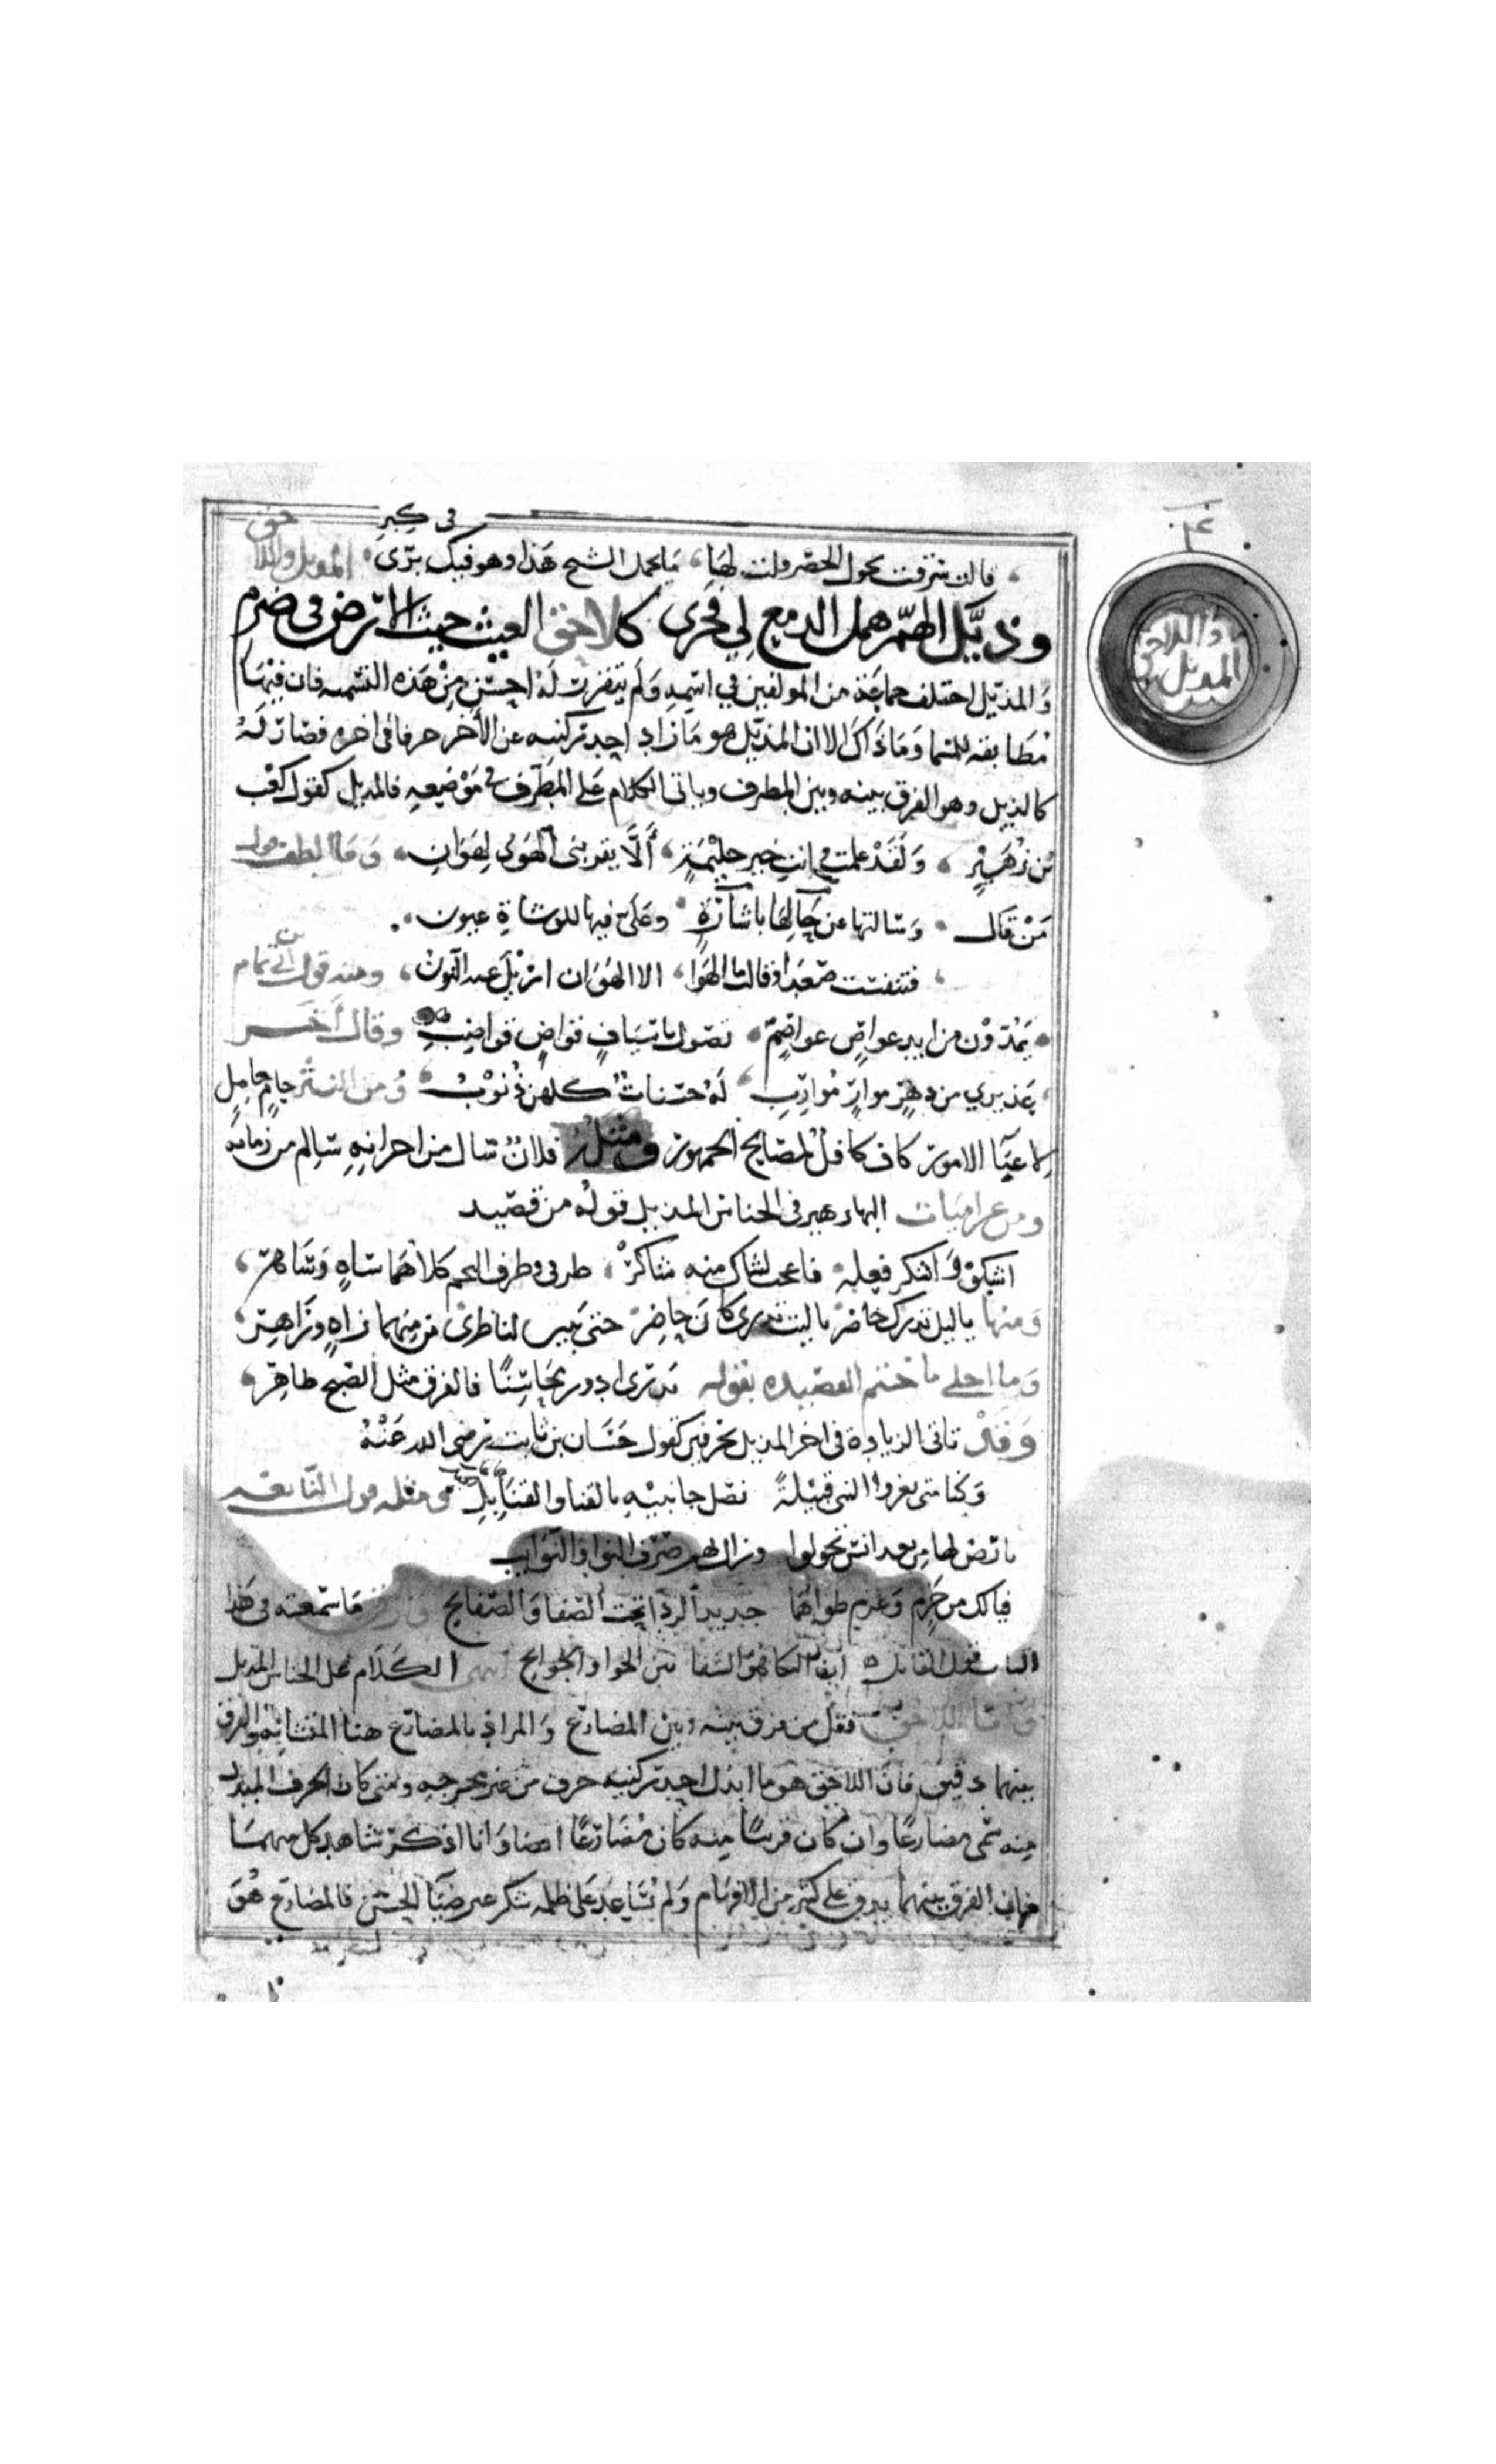 في كبر
قالت شرفت بحول الخصر قلت لها ما يحمل الشيح هذا وهو فيك بري المذيل واللاحق
وذيّل الهمّ همل الدمع لي فجرى كلاحق الغيث حيث الارض في ضرم
والمذيل اختلف جماعة من المولفين في اسمه ولم يتقرر له احسن من هذه التسمية فان فيها
مطابقة للمسما وما ذاك الا ان المذيل هو ما زاد احد ركنيه عن الآخر حرفا في اخره فصار له
كالذيل وهو الفرق بينه وبين المطرف وياتي الكلام على المطرف في موضعه فالمذيل كقول كعب
بن زهير ولقد علمت وانت خير حليمة ألّا يقربني الهوى لهوان وما الطف قول
من قال وسالتها عن حالها باشارة وعلى فيها للوشاة عيون
فتنفست صعدا وقالت ما الهوا الا الهوان ازيل عنه النون ومنه قول ابي تمام
يمدون من ايد عواص عواصم تصول باسياف قواض قواضب وقال آخر
عذيري من دهر موار موارب له حسنات كلهن ذنوب ومن النثر حام حامل
لاعبا الامور كاف كافل لمصالح الجمهور ومثله فلان سال من احزانه سالم من زمانه
ومن غراميات البها زهير في الجناس المذيل قوله من قصيد
اشكو واشكر فعله فاعجب لشاك منه شاكر طرفي وطرف النجم كلاهما ساه وساهر
ومنها ياليل بدرك حاضر ياليت بدري كان حاضر حتى يبين لناظري من منهما زاه وزاهر
وما احلى ما ختم القصيده بقوله بدري ادور محاسنا فالفرق مثل الصبح ظاهر
وقد تاتي الزيادة في اخر المذيل بحرفين كقول حسان بن ثابت رضي الله عنه
وكنا متى يغزوا النبي قبيلة نصل جانبيه بالقنا والقنابل ومثله قول النابغه
لها من بعد انس تحولوا وزال بهم صرف النوا والنوايب
فيالك من حزم وعزم طواهما جديد الردا تحت الصفا والصفايح ما سمعته في هذا
الباب قول القايل ان البكا هو الشفا من الجوا بين الجوانح انتهى الكلام على الجناس المذيل
واما اللاحق فقل من فرق بينه وبين المضارع والمراد بالمضارع هنا المتشابه والفرق
بينهما دقيق فان اللاحق هو ما ابدل احد ركنيه حرف من غير مخرجه ومتى كان الحرف المبدل
منه سمي مضارعا وان كان قريبا منه كان مضارعا ايضا وانا اذكر شاهد كل منهما
فان الفرق بينهما يدق على كثير من الافهام ولم يساعد على ظلمه شكر ضيا الحسن فالمضارع هو
المذيل واللاحق